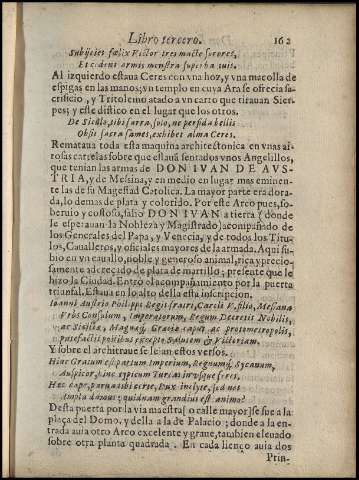 Libro tercero. 162
Subijcies fœlix Victor tres macte sorores,
Et cedent armis monstra superba tuis.
Al izquierdo estaua Ceres con vna hoz, y vna macolla de
espigas en las manos; vn templo en cuya Ara se ofrecia sa-
crificio, y Tritolemo atado a vn carto que tirauan Sier-
pes; y este distico en el lugar que los otros.
De Siculo, tibi farra, solo, ne perfida bellis
Obsit sacra fames, exhibet alma Ceres.
Remataua toda esta maquina architectonica en vnas ai-
rosas cartelas sobre que estauã sentados vnos Angelillos,
que tenian las armas de DON IVAN DE AVS-
TRIA, y de Messina, y en medio en lugar mas eminen-
te las de su Magestad Catolica. La mayor parte era dora-
da, lo demas de plata y colorido. Por este Arco pues, so-
beruio y costoso, salio DON IVAN a tierra (donde
le esperauan la Nobleza y Magistrado) acompañado de
los Generales del Papa, y Venecia, y de todos los Titu-
los, Caualleros, y oficiales mayores de la armada. Aqui su-
bio en vn cauallo, noble y generoso animal, rica y precio-
samente adereçado de plata de martillo; presente que le
hizo la Ciudad. Entro el acompañamiento por la puerta
triunfal. Estaua en lo alto della esta inscripcion.
Ioanni Austrio Philippi Regis fratri, Caroli V. filio, Messana
Vrbs Consulum, Imperatorum, Regum Decretis Nobilis,
ac Siciliæ, Magnæq; Græciæ caput ac protometropolis,
patefactis portibus excepto Salutem & Victoriam.
Y sobre el architraue se leian estos versos.
Hinc Graium est partum imperium, Regnumq; Sycanum,
Auspicor, hinc auspicium Turcas inuosque feres.
Hæc cape, parua tibi certe, Dux inclyte, sed nos
Ampla damus; quidnam grandius est animo?
Desta puerta por la via maestra [o calle mayor] se fue a la
plaça del Domo, y della a la de Palacio; donde a la en-
trada auia otro Arco excelente y graue, tambien eleuado
sobre otra planta quadrada. En cada lienço auia dos
Prin-